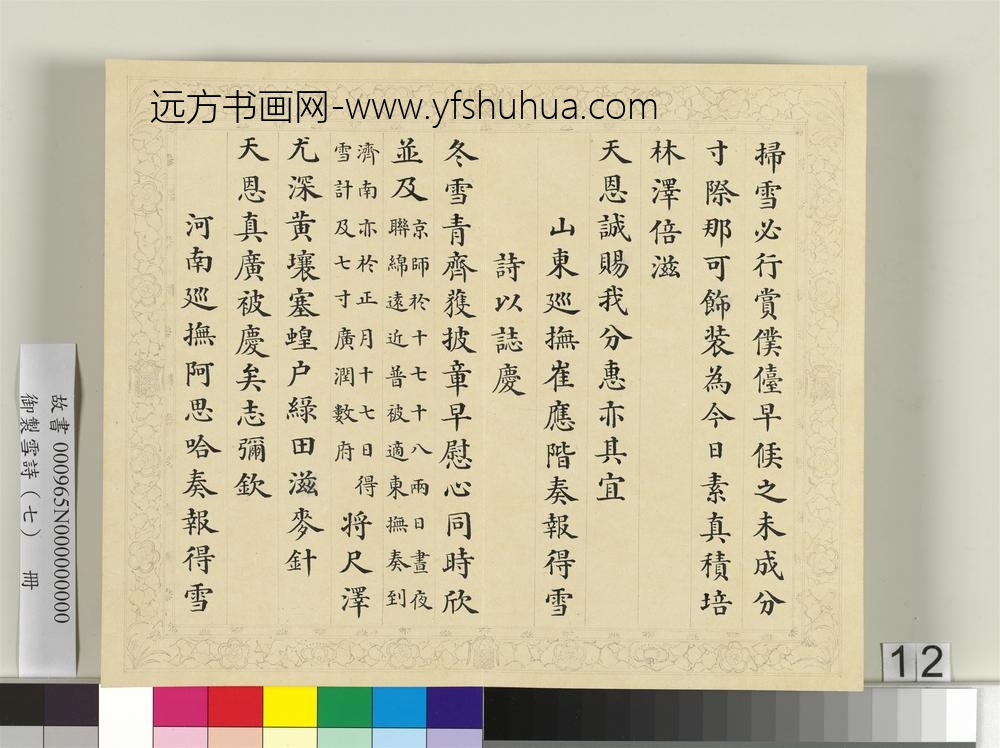 远方书画网-www.yfshuhua.com
掃雪必行賞僕僮早倐之未成分
寸際那可飾裝為今日素真積培
林澤倍滋
天恩誠賜我分惠亦其宜
山東廵撫崔應階奏報得雪
詩以誌慶
冬雪青齊蒦披章早慰心同時欣
並及京師於十七十八兩日晝夜
聯綿遠近普被適東撫奏到
濟南亦於正月十七日得
雪計及七寸廣潤數府將尺澤
尤深黃壤塞蝗户綠田滋麥針
天恩真廣被慶矣志彌欽
河南廵撫阿思哈奏報得雪
故書 000965N000000000
御製雪詩（七） 冊
12